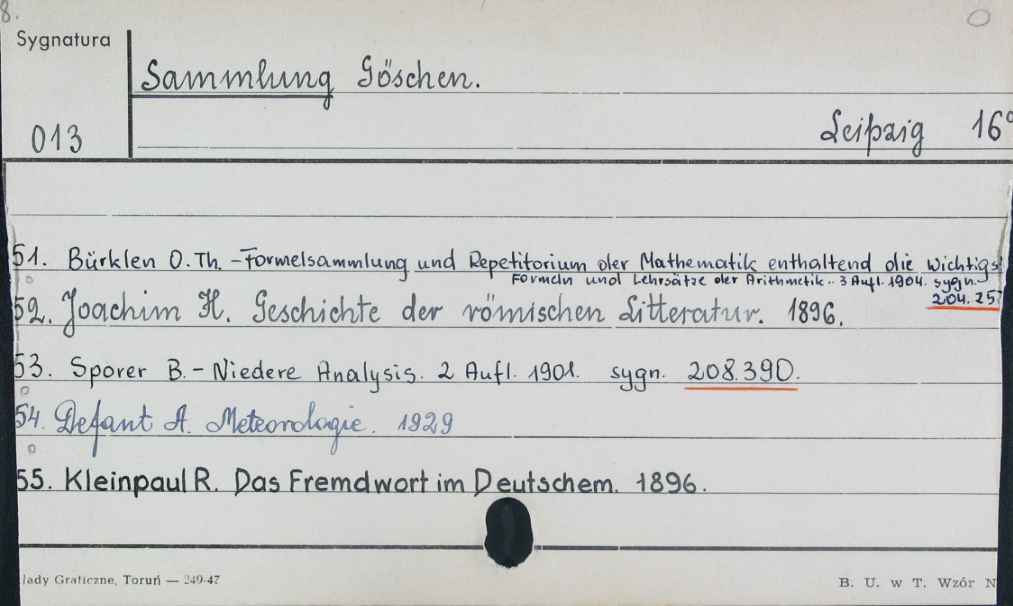 8.
Sygnatura
Sammlung Göschen.
013
Leipzig 16°
51. Bürklen O. Th. - Formelsammlung und Repetitorium der Mathematik enthaltend die wichtigst
Formeln und Lehrsätze der Arithmetik.. 3 Aufl. 1904. sygn.
204.25
52. Joachim H. Geschichte der römischen Litteratur. 1896.
53. Sporer B. - Niedere Analysis. 2 Aufl. 1901. sygn. 208.390.
54. Defant A. Meteorologie. 1929
55. Kleinpaul R. Das Fremdwort im Deutschem. 1896.
łady Graficzne, Toruń — 249-47
B. U. w T. Wzór N